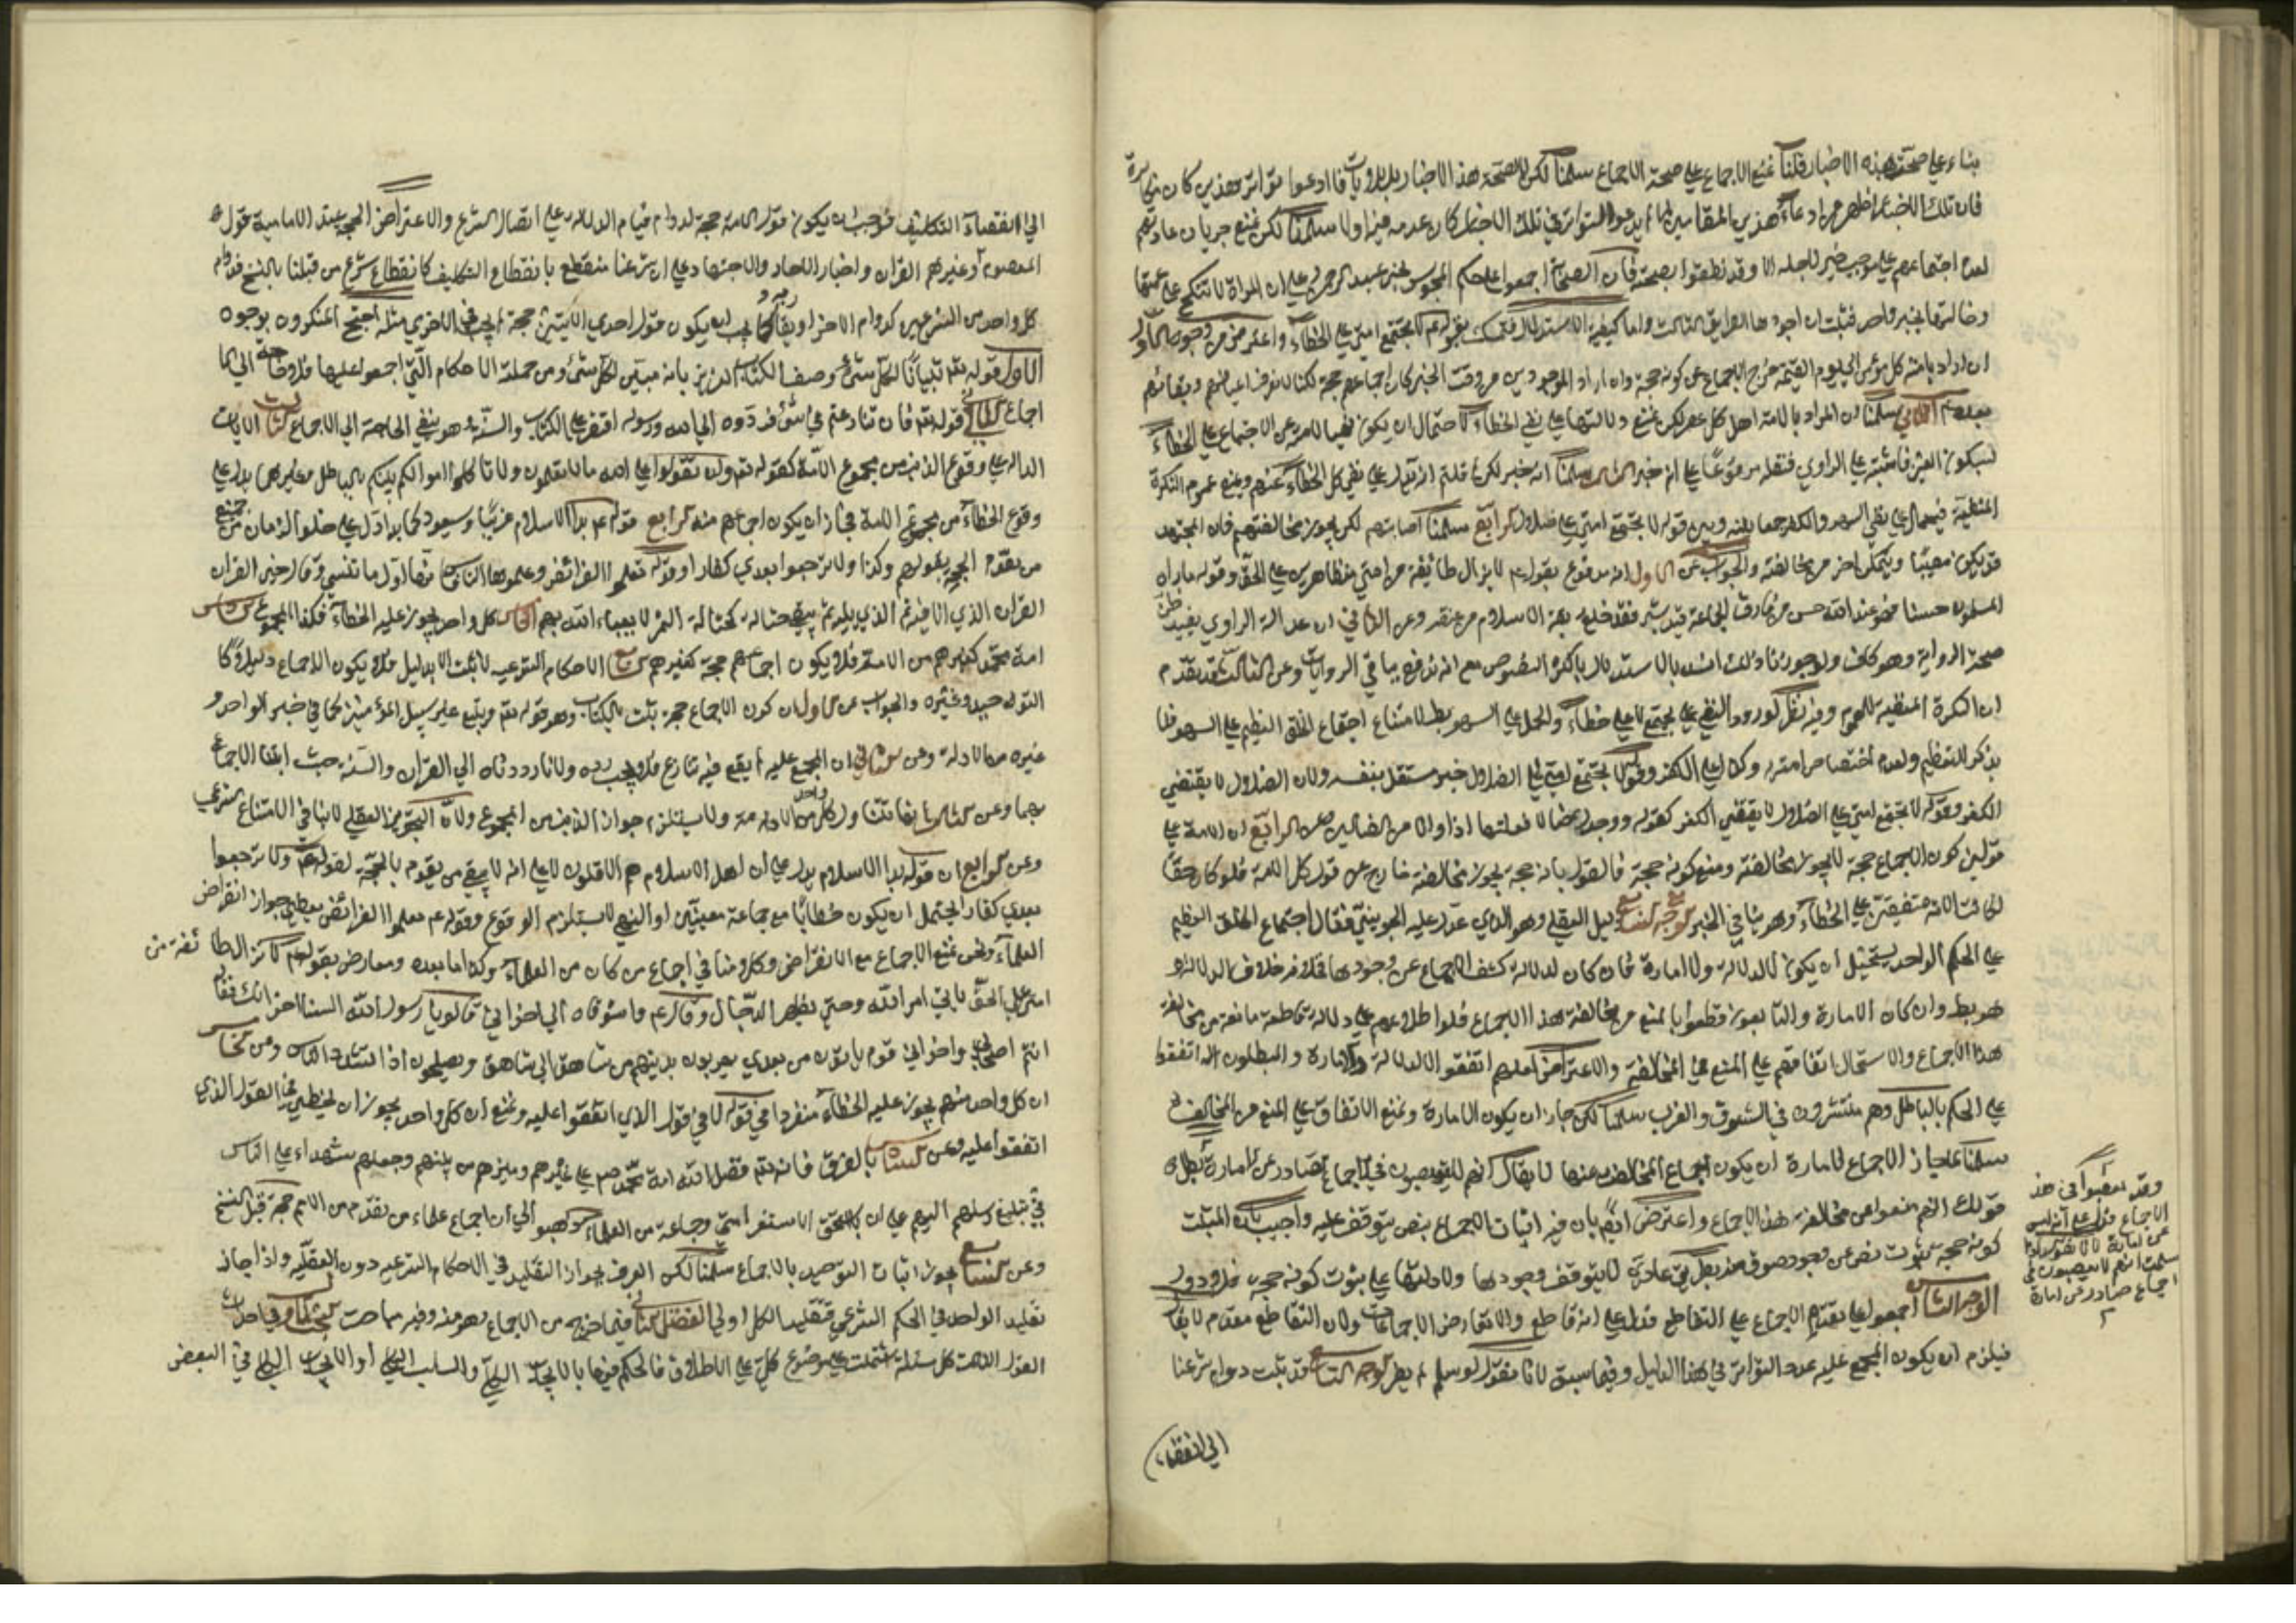 بناء على صحة هذه الاخبار قلنا نمنع الاجماع على صحة الاجماع سلمنا لكن لا لصحة هذا الاخبار بل
فان تلك الاخبار اظهر من ادعاء هذين المقامين التواتر في تلك الاخبار كان عدمه سلمنا لكن نمنع جريان عادتهم
لعدم اجتماعهم على موجب خبر لاجله الا وقد نطقوا بصحته فان الصحابة اجمعوا على حكم المجوس بخبر عبد الرحمن على ان المراة لا تنكح على عمتها
وخالتها بخبر واحد فثبت ان اجود الطرايق الثالث واما كيفية الاستدلال بقوله عم لا تجتمع امتي على الخطاء واعترض من وجوه الاول
ان اراد بامته كل مؤمن الى يوم القيمة خرج الاجماع عن كونه حجة وان اراد الموجودين من وقت الخبر كان اجماعهم حجة لكنا لا نعرف اعيانهم وبقائهم
بعده عم الثاني سلمنا ان المراد بالامة اهل كل عصر لكن نمنع دلالتها على نفي الخطاء لاحتمال ان يكون نهيا للامة عن الاجتماع على الخطاء
فاشتبه على الراوي فنقله مرفوعا على انه خبر الثالث سلمنا انه خبر لكن لم قلتم انه يدل على نفي كل الخطاء عنهم ونمنع عموم النكرة
المنفية فيحمل على نفي السهو والكفر جمعا بينه وبين قوله لا تجتمع امتي على ضلال الرابع سلمنا اصابتهم لكن يجوز مخالفتهم فان المجتهد
قد يكون مصيبا ويتمكن اخر من مخالفته والجواب عن الاول انه مدفوع بقوله عم لا يزال طائفة من امتي متظاهرين على الحق وقوله ما راه
المسلمون حسنا فهو عند الله حسن من فارق الجماعة قيد شبر فقد خلع ربقة الاسلام من عنقه وعن الثاني ان عدالة الراوي يفيد ظن
صحة الرواية وهو كاف ولو جوزنا ذلك انسد باب الاستدلال باكثر النصوص مع انه تدفعه باقي الروايات وعن الثالث قد تقدم
ان النكرة المنفية للعموم وفيه نظر لورود النفي على تجتمع لا على خطاء والحمل على السهو بط لامتناع اجتماع الخلق العظيم على السهو فلا
يذكر للتعظيم ولعدم اختصاص امته به وكذا على الكفر وقوله لا تجتمع امتي على الضلال خبر مستقل بنفسه ولان الضلال لا يقتضي
الكفر وقوله لا تجتمع امتي على الضلال لا يقتضي الكفر كقوله ووجدك ضالا فعلتها اذا وانا من الضالين وعن الرابع ان الامة على
قولين كون الاجماع حجة لا يجوز مخالفته ومنع كونه حجة فالقول بانه حجة يجوز مخالفته خارج عن قول كل الامة فلو كان حقا
لكانت الامة متفقين على الخطاء وهو ينافي الخبر الوجه السابع دليل العقلي وهو الذي عول عليه الجويني فقال اجتماع الخلق العظيم
على الحكم الواحد يستحيل ان يكون لا لدلالة ولا امارة فان كان لدلالة كشف الاجماع عن وجودها فخلافه خلاف الدلالة
هو بط وان كان الامارة والتابعون قطعوا بالمنع من مخالفة هذا الاجماع فلولا اطلاعهم على دلالة قاطعة مانعة من مخالفة
هذا الاجماع والا استحال اتفاقهم على المنع من المخالفة والاعتراض لعلهم اتفقوا لا لدلالة ولا امارة والمبطلون اتفقوا
على الحكم بالباطل وهم منتشرون في الشرق والغرب سلمنا لكن جاز ان يكون الامارة ونمنع الاتفاق على المنع من المخالفة
سلمنا لما جاز الاجماع لامارة ان يكون اجماع المخالفة عنها لا يقال انهم لا يتعصبون في اجماع صادر عن امارة
قولك انهم منعوا من مخالفة هذا الاجماع واعترض ايضا بان فيه اثبات الاجماع بنص يتوقف عليه واجيب بان المثبت
كونه حجة ثبوت نص عن وجود صورة منه بطريق عادي لا يتوقف وجودها ولا دلالتها على ثبوت كونه حجة فلا دور
الوجه الثامن اجمعوا على تقديم الاجماع على القاطع فدل على انه قاطع والا تعارض الاجماعات ولان القاطع مقدم لا يقال
فيلزم ان يكون المجمع عليه عدد التواتر في هذا الدليل وفيما سبق لانا نقول لو سلم لم يضر الوجه التاسع قد ثبت دوام شرعنا
الى انقضاء
وقد تعصبوا في هذا
الاجماع فدل على انه ليس
عن امارة لانا نقول لم
سلمت انهم لا يتعصبون في
اجماع صادر عن امارة
الى انقضاء التكليف فوجب ان يكون قول الامة حجة لدوام قيام الدلالة على اتصال الشرع والاعتراض الحجة عند الامامية قول
المعصوم وغيرهم القران واخبار الاحاد والاجتهاد على ان شرعنا منقطع بانقطاع التكليف كانقطاع شرع من قبلنا بالنسخ فدوام
كل واحد من الشرعين كدوام الاخر او يقال يجب ان يكون قول احدى الامتين حجة في الاخرى مثله احتج المنكرون بوجوه
الاول قوله تعم تبيانا لكل شيء وصف الكتاب العزيز بانه مبين لكل شيء ومن جملته الاحكام التي اجمعوا عليها فلا حاجة الى
اجماع الثاني قوله تعم فان تنازعتم في شيء فردوه الى الله ورسوله اقتصر على الكتاب والسنة وهو ينفي الحاجة الى الاجماع الثالث الايات
الدالة على وقوع الذنب من مجموع الامة كقوله تعم وان تقولوا على الله ما لا تعلمون ولا تاكلوا اموالكم بينكم بالباطل وغيرهما يدل على
وقوع الخطاء من مجموع الامة فجاز ان يكون اجماعهم منه الرابع قوله عم بدا الاسلام غريبا وسيعود كما بدا دل على خلو الزمان عن
من تقوم الحجة بقولهم وكذا ولا ترجعوا بعدي كفارا وقوله تعلموا الفرائض وعلموها الناس فانها اول ما تنسى وقال خير القران
القران الذي انا فيه ثم الذي يليه ثم يبقى حثالة كحثالة التمر لا يعباء الله بهم الخامس كل واحد يجوز عليه الخطاء فكذا المجموع السادس
امة محمد كغيرهم من الامم فلا يكون اجماعهم حجة كغيرهم السابع الاحكام الشرعية لا يثبت الا بدليل فلا يكون الاجماع دليلا كا
التوحيد وغيره والجواب عن الاول ان كون الاجماع حجة يثبت بالكتاب وهو قوله تعم ويتبع غير سبيل المؤمنين كما في خبر الواحد و
غيره من الادلة وعن الثاني ان المجمع عليه لم يقع فيه تنازع فلا يجب رده ولانا رددناه الى القران والسنة حيث اثبتنا الاجماع
بهما وعن الثالث ولكل واحد من الامة ولا يستلزم جواز الذنب من المجموع ولان التجويز العقلي لا ينافي الامتناع الشرعي
وعن الرابع ان قوله بدا الاسلام يدل على ان اهل الاسلام هم الاقلون لا على انه لا يبقى من يقوم بالحجة لقولهم ولا ترجعوا
بعدي كفارا يحتمل ان يكون خطابا مع جماعة معينين او النهي لا يستلزم الوقوع وقوله عم تعلموا الفرائض يعطي جواز انقراض
العلماء ونحن نمنع الاجماع مع الانقراض وكلامنا في اجماع من كان من العلماء وكذا ما بعده ومعارض بقوله عم لا تزال طائفة من
امتي على الحق ياتي امر الله وحتى يظهر الدجال وقال عم واشوقاه الى اخواني قالوا يا رسول الله السنا اخوانك فقال
انتم اصحابي واخواني قوم ياتون من بعدي يهربون بدينهم من شاهق الى شاهق ويصلحون اذا فسد الناس وعن الخامس
ان كل واحد منهم يجوز عليه الخطاء منفردا في قوله لا في قول الذي اتفقوا عليه ونمنع ان كل واحد يجوز ان يخطي في القول الذي
اتفقوا عليه وعن السادس بالفرق فانه تعم فضل الله امة محمد صم على غيرهم وميزهم من بينهم وجعلهم شهداء على الناس
في تبليغ رسلهم اليهم على ان ابا اسحق الاسفرائني وجماعة من العلماء ذهبوا الى ان اجماع علماء من تقدم من الامم حجة قبل النسخ
وعن السابع يجوز اثبات التوحيد بالاجماع سلمنا لكن الفرق بجواز التقليد في الاحكام الشرعية دون العقلية واذا جاز
تقليد الواحد في الحكم الشرعي فتقليد الكل اولى الفصل الثاني فيما اخرج من الاجماع وهو منه وفيه مباحث البحث الاول في احداث
القول الثالث كل مسئلة اشتملت على موضوع كلي على الاطلاق فالحكم فيها بالايجاب الكلي والسلب الكلي او الايجاب الكلي في البعض